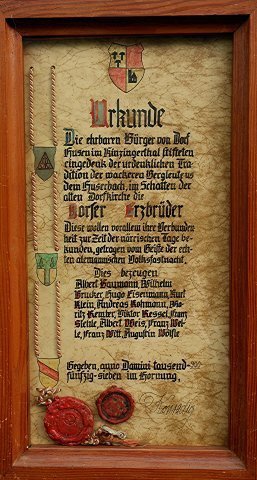 Urkunde
Die ehrbaren Bürger von Dorf
Husen im Kinzingerthal stifteten
eingedenk der urdenklichen Tra
dition der wackeren Bergleute us
dem Huserbach, im Schatten der
alten Dorfkirche die
Dorfer Erzbrüder
Diese wollen vor allem ihre Verbunden
heit zur Zeit der närrischen Tage be-
kunden, getragen vom Geiste der ech
ten alemannischen Volksfastnacht.
Dies bezeugen
Albert Baumann, Wilhelm
Brucker, Hugo Eisenmann, Kurt
Klein, Andreas Kohmann, Mo
ritz Kemter, Viktor Kessel, Franz
Stehle, Albert Weis, Franz Wel-
le, Franz Witt, Augustin Wölfle
Gegeben, anno Domini tausend-900
fünfzig-sieben im Hornung,